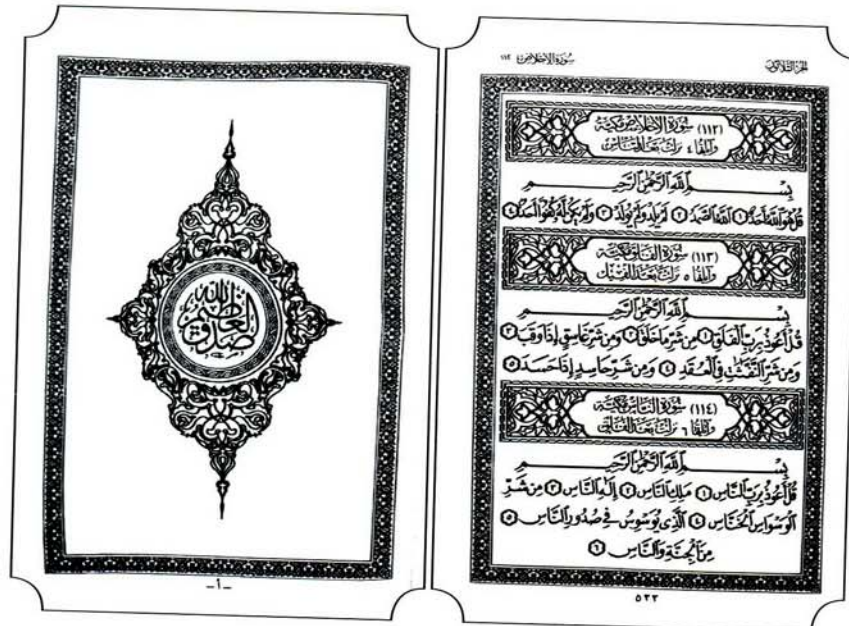 سورة الإخلاص ١١٢
الجزء الثلاثون
(١١٢) سورة الإخلاص مكية
وآياتها ٤ نزلت بعد الناس
بسم الله الرحمن الرحيم
قُلْ هُوَ اللَّهُ أَحَدٌ ١ اللَّهُ الصَّمَدُ ٢ لَمْ يَلِدْ وَلَمْ يُولَدْ ٣ وَلَمْ يَكُن لَّهُ كُفُوًا أَحَدٌ ٤
(١١٣) سورة الفلق مكية
وآياتها ٥ نزلت بعد الفيل
بسم الله الرحمن الرحيم
قُلْ أَعُوذُ بِرَبِّ الْفَلَقِ ١ مِن شَرِّ مَا خَلَقَ ٢ وَمِن شَرِّ غَاسِقٍ إِذَا وَقَبَ ٣
وَمِن شَرِّ النَّفَّٰثَٰتِ فِي الْعُقَدِ ٤ وَمِن شَرِّ حَاسِدٍ إِذَا حَسَدَ ٥
(١١٤) سورة الناس مكية
وآياتها ٦ نزلت بعد الفلق
بسم الله الرحمن الرحيم
قُلْ أَعُوذُ بِرَبِّ النَّاسِ ١ مَلِكِ النَّاسِ ٢ إِلَٰهِ النَّاسِ ٣ مِن شَرِّ
الْوَسْوَاسِ الْخَنَّاسِ ٤ الَّذِي يُوَسْوِسُ فِي صُدُورِ النَّاسِ ٥
مِنَ الْجِنَّةِ وَالنَّاسِ ٦
٥٢٢
صدق الله العظيم
-أ-